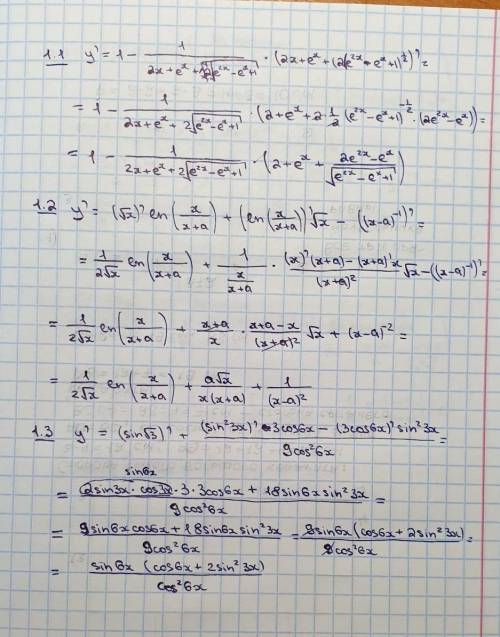 1.1 y' = 1 - 1/(2x+e^x+2√(e^(2x)-e^x+1)) · (2x+e^x+(2(e^(2x)-e^x+1)^(1/2))' =
= 1 - 1/(2x+e^x+2√(e^(2x)-e^x+1)) · (2+e^x+2·1/2 (e^(2x)-e^x+1)^(-1/2) · (2e^(2x)-e^x)) =
= 1 - 1/(2x+e^x+2√(e^(2x)-e^x+1)) · (2+e^x + (2e^(2x)-e^x)/√(e^(2x)-e^x+1))
1.2 y' = (√x)' ln(x/(x+a)) + (ln(x/(x+a))'√x - ((x-a)^(-1))' =
= 1/(2√x) ln(x/(x+a)) + 1/(x/(x+a)) · ((x)'(x+a)-(x+a)'x)/(x+a)^2 √x - ((x-a)^(-1))' =
= 1/(2√x) ln(x/(x+a)) + (x+a)/x · (x+a-x)/(x+a)^2 √x + (x-a)^(-2) =
= 1/(2√x) ln(x/(x+a)) + a√x/(x(x+a)) + 1/(x-a)^2
1.3 y' = (sin√3)' + ((sin^2 3x)' · 3cos6x - (3cos6x)' sin^2 3x)/(9cos^2 6x) =
sin6x
= (2sin3x · cos3x · 3 · 3cos6x + 18sin6x sin^2 3x)/(9cos^2 6x) =
= (9sin6x cos6x + 18sin6x sin^2 3x)/(9cos^2 6x) = 9sin6x(cos6x + 2sin^2 3x)/(9cos^2 6x) =
= sin6x (cos6x + 2sin^2 3x)/(cos^2 6x)